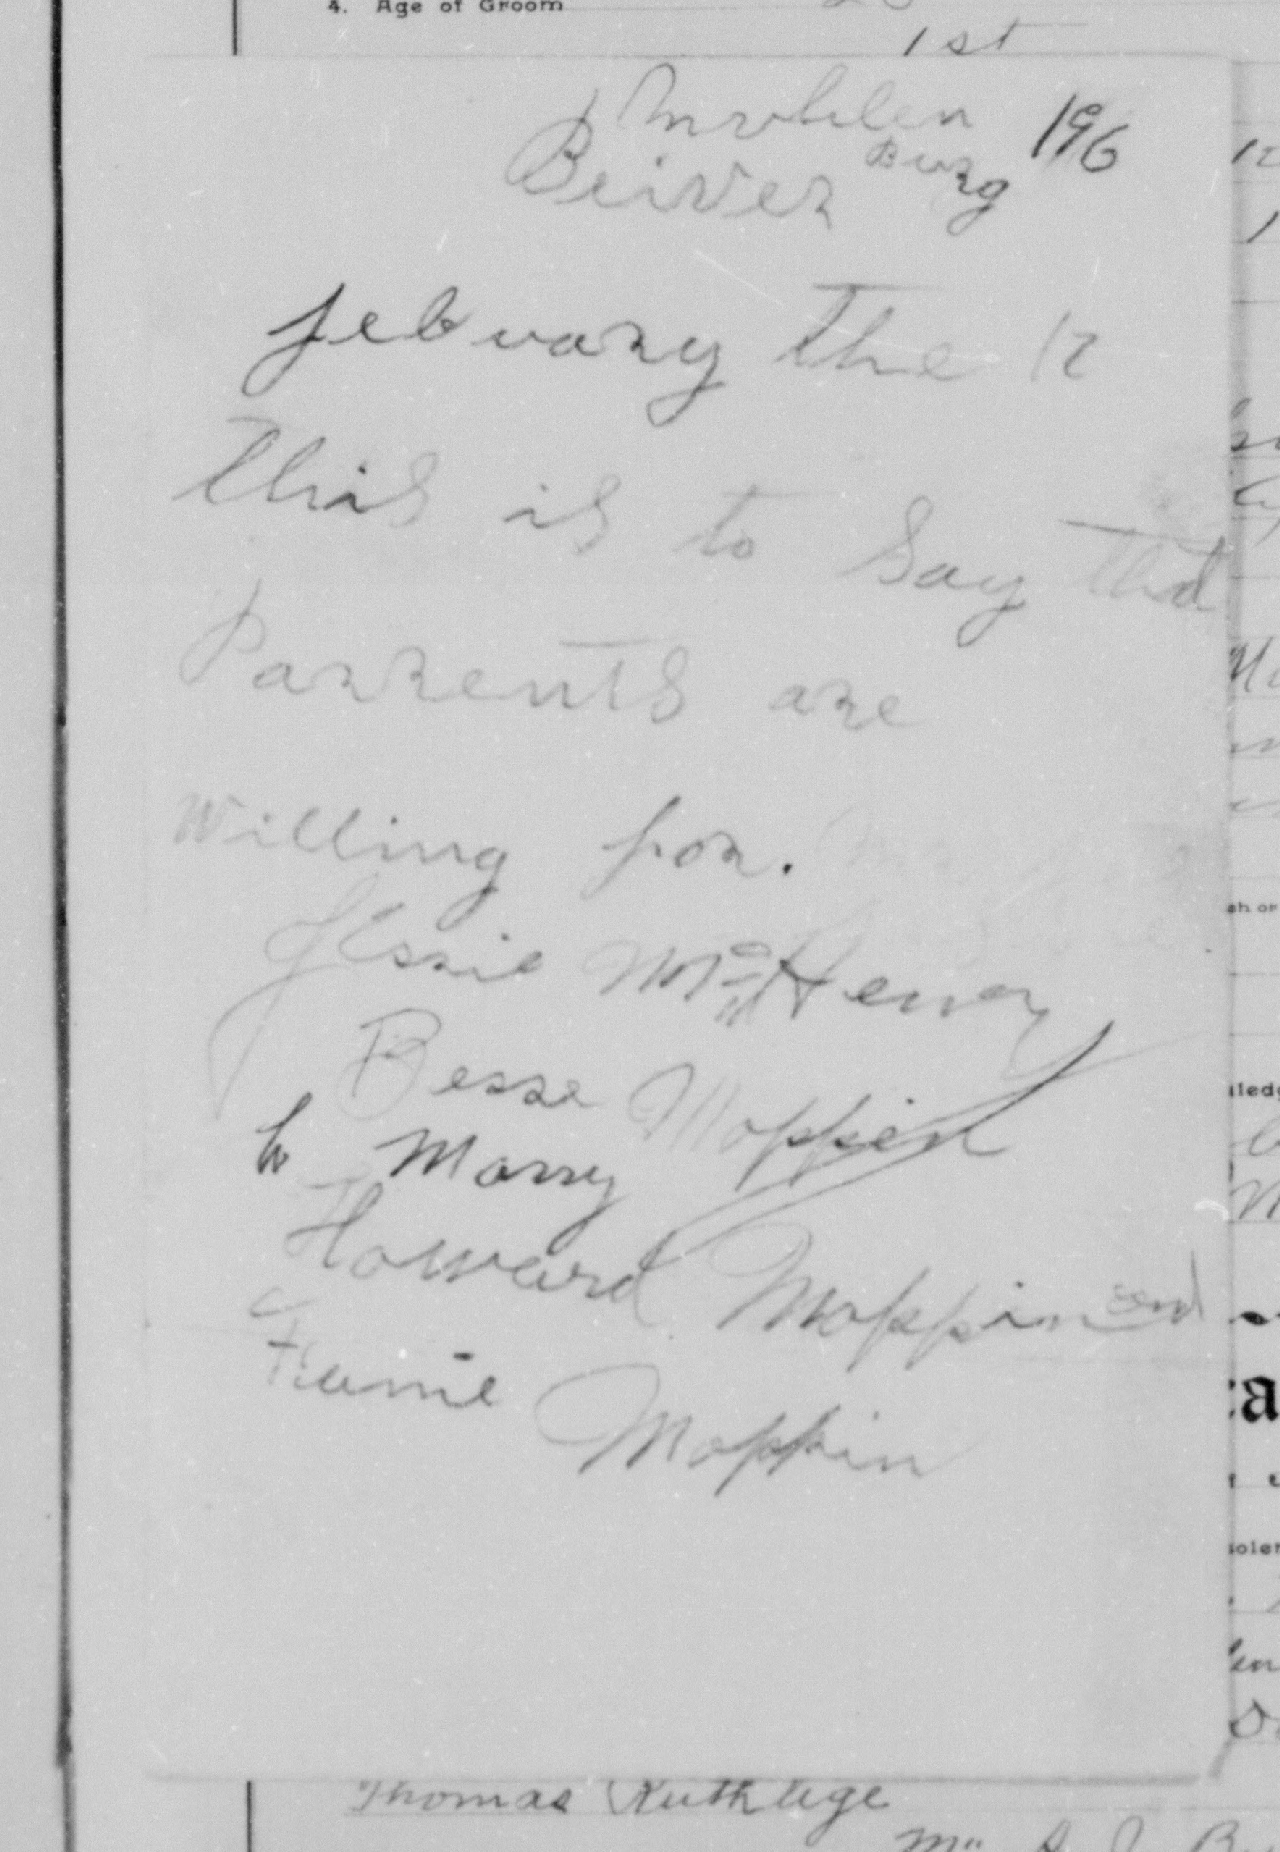 4. Age of Groom
1st
Muhlen
Burg 196
Beiver
february the 12
this is to Say that
Parrents are
willing for.
Jessie McHenry
Besse Moppin
to Marry
Howard Moppin and
Fannie Moppin
Thomas Ruthlege